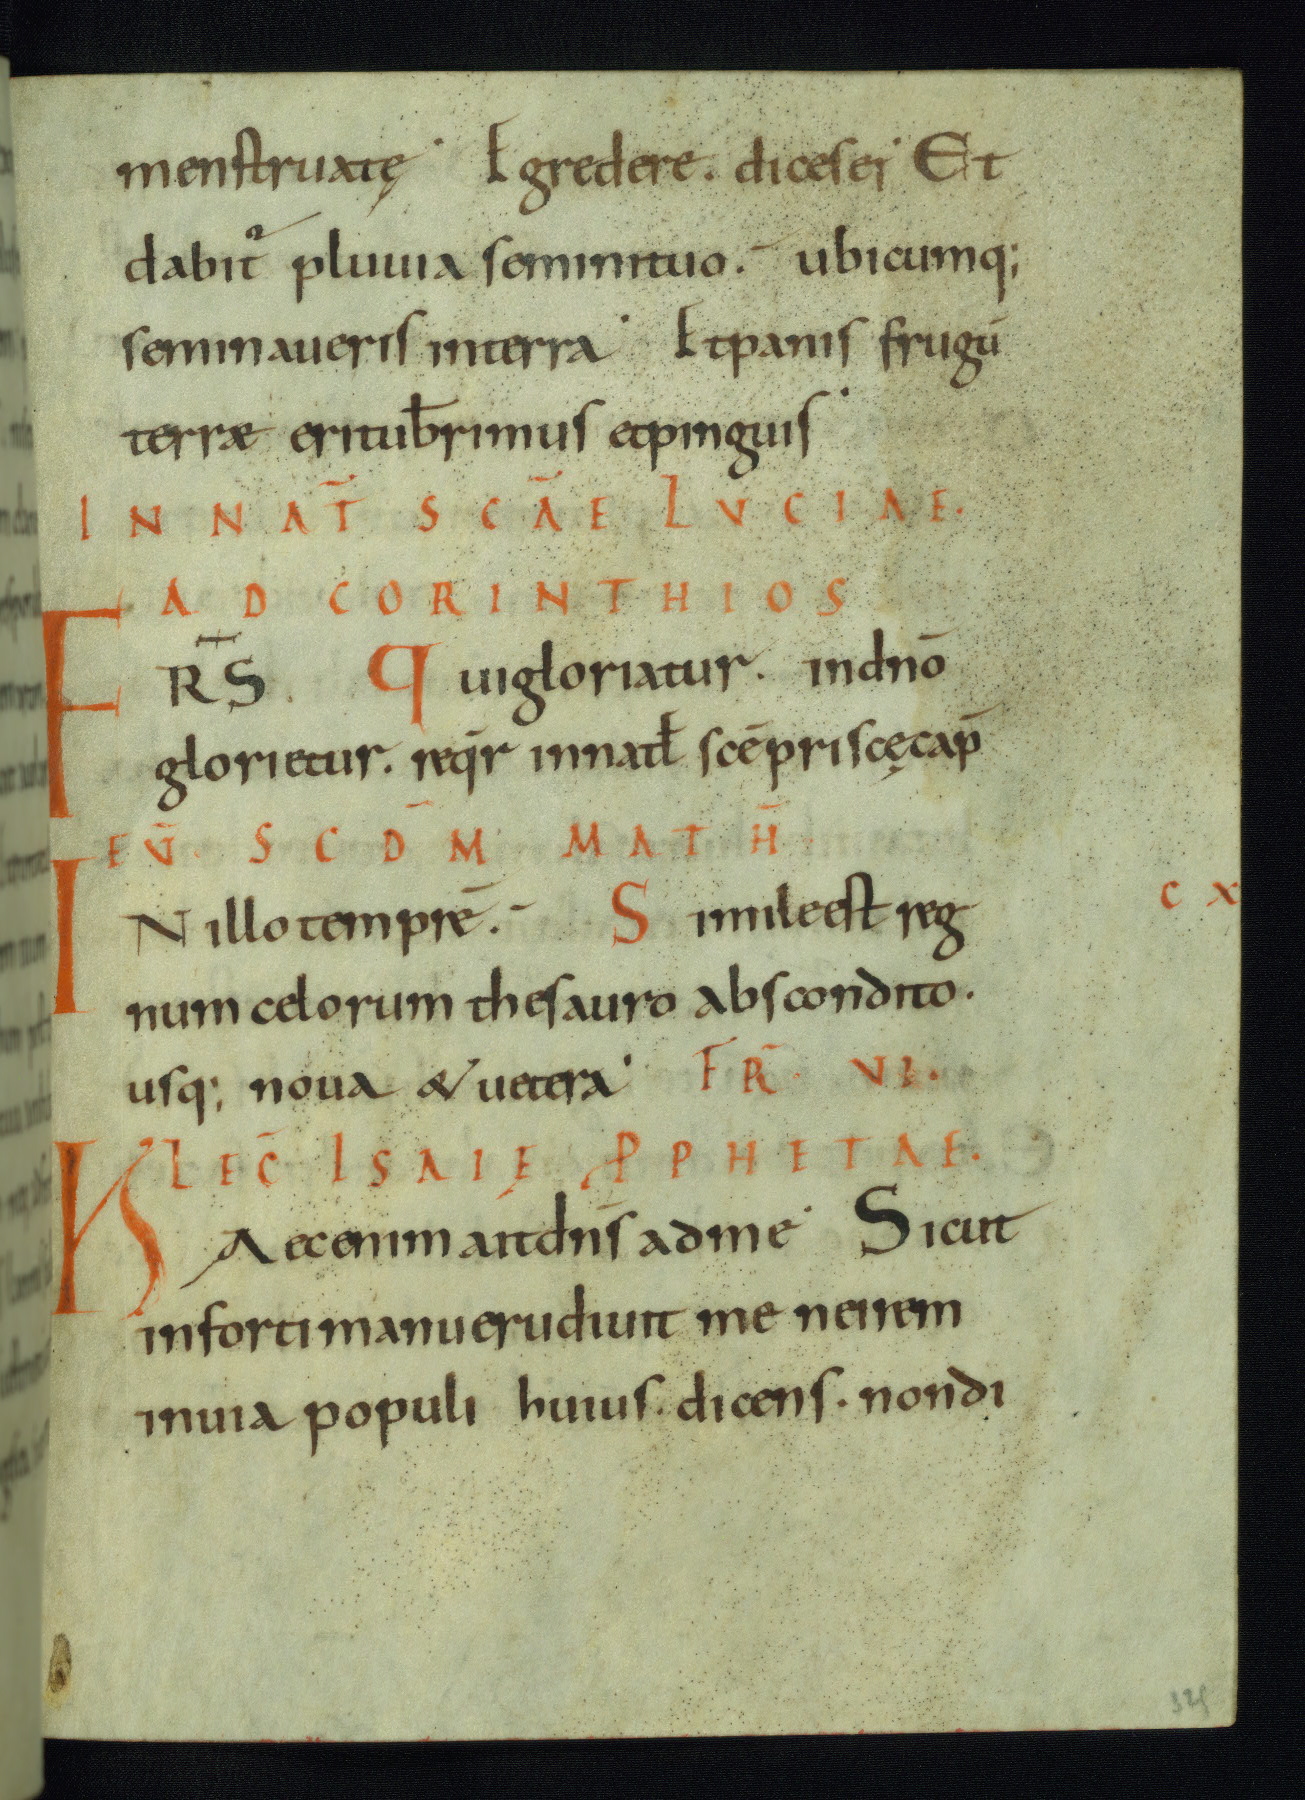 menstruatę· Egredere. dices ei· Et
dabit᷑ pluuia semini tuo. ubicumq;
seminaueris in terra· Et panis frugū
terrae erit ub̄rimus et pinguis·
IN NAT̄ SCĀE LUCIAE.
AD CORINTHIOS
FRS̄. Qui gloriatur. in dnō
glorietur. req̄r in natł scē priscę cap̄
EŪ. SCD̄M MATH̄
IN illo tempr̄e. Simile est reg
CX
num celorum thesauro abscondito.
usq; noua & uetera· FR̄. VI.
LEC̄ ISAIĘ PPHETAE.
HAec enim ait dn̄s ad me· Sicut
in forti manu erudiuit me ne irem
in uia populi huius. dicens. non di
325